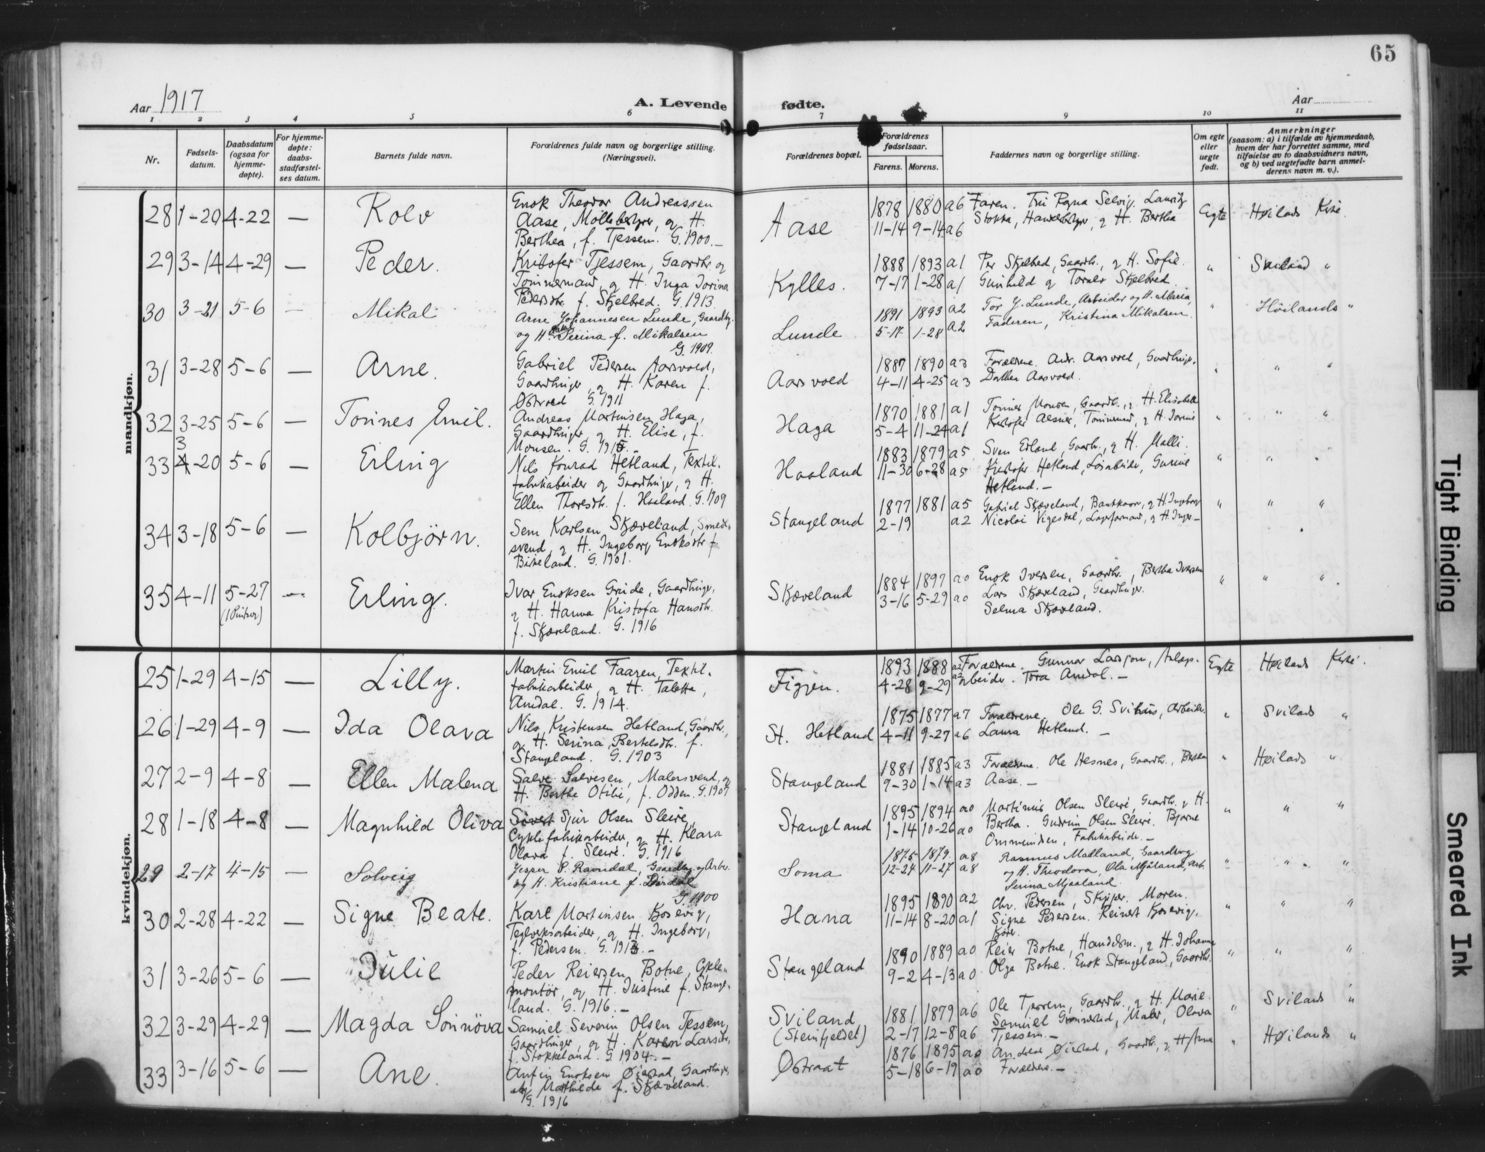 65
Aar 1917
A. Levende fødte.
Aar
1 2 3 4 5 6 7 9 10 11
Nr.
Fødsels-
datum.
Daabsdatum
(ogsaa for
hjemme-
døpte).
For hjemme-
døpte:
daabs-
stadfæstel-
ses datum.
Barnets fulde navn.
Forældrenes fulde navn og borgerlige stilling.
(Næringsvei).
Forældrenes bopæl.
Forældrenes
fødselsaar.
Farens. Morens.
Faddernes navn og borgerlige stilling.
Om egte
eller
uegte
født.
Anmerkninger
(saasom: a) i tilfælde av hjemmedaab,
hvem der har forrettet samme, med
tilføielse av to daabsvidners navn,
og b) ved uegtefødte barn anmel-
derens navn m. v.).
mandkjøn.
28 1-20 4-22 — Kolv
Enok Theodor Andreassen
Aase, Møllebestyrer, og H.
Berthea, f. Tjessem. G. 1900.—
Aase
1878 1880 a6
11-14 9-14 a6
Faren.
Stokka, Handelsbestyr, og H. Bertha
Egte Høilands Kirke.
29 3-14 4-29 — Peder.
Tjessem, Gaardbr. og
Tømmermand, og H. Inga Jorina
Pedersdtr. f. Skjelbred. G. 1913
Kylles.
1888 1893 a1
7-17 1-28 a1
Per Skjelbred, Gaardb., og H. Sofie
Gunhild og Skjelbred.
" Sviland "
30 3-21 5-6 — Mikal
Arne Johannesen Lunde, Gaardbr.
og H. Serina f. Mikalsen
G. 1909.
Lunde
1891 1893 a2
5-17 1-28 a2
Tor J. Lunde, Arbeider og H. Maria,
Faderen, Kristina Mikalsen.
" Høilands "
31 3-28 5-6 — Arne.
Gabriel Pedersen Aarsvold,
Gaardbruger og H. Karen f.
Østraat G. 1911
Aarsvold
1887 1890 a3
4-11 4-25 a3
Forældrene. Andr. Aarsvold, Gaardbruger.
Aarsvold.
" " "
32 3-25 5-6 — Tonnes Emil.
Andreas Martinsen Haga,
Gaardbruger, og H. Elise, f.
Monsen. G.
Haga
1870 1881 a1
5-4 11-24 a1
Tonnes Monsen, Gaardb., og H. Elisabeth
" " "
33 3 4-20 5-6 — Erling
Nils Konrad Hetland, Textil-
fabrikarbeider og Gaardbruger, og H.
Ellen Thoresdtr. f. Haaland. G. 1909
Haaland
1883 1879 a5
11-30 6-28 a5
Sven Erland, Gaardb., og H. Malli.
Kristofer Hetland, Gurine
Hetland.—
" " "
34 3-18 5-6 — Kolbjörn.
Sem Karlsen Skjæveland, Smede-
svend, og H. Ingeborg Enoksdtr f.
Bireland. G. 1901.
Stangeland
1877 1881 a5
2-19 a2
Gabriel Skjæveland, og H. Ingeborg
Nicolai og H. Inga—
" " "
35 4-11 5-27 — Erling.
Ivar Enoksen Grude, Gaardbruger,
og H. Hanna Kristofa Hansdtr.
f. Skjæveland. G. 1916
Skjæveland
1884 1897 a0
3-16 5-29 a0
Enok Iversen, Gaardbr., Bertha Iversen
Lars Skjæveland, Gaardbruger.
Selma Skjæveland.
" " "
kvindekjøn.
25 1-29 4-15 — Lilly.
Martin Emil Faaren, Textil-
fabrikarbeider, og H. Taletta,
Amdal. G. 1914.
Figjen.
1893 1888 a2
4-28 9-29 a2
Forældrene. Gunnar Larsson, Anlægs-
arbeider. Tora Amdal.—
Egte Høilands Kirke.
26 1-29 4-9 — Ida Olava
Nils Kristensen Hetland, Gaardbr,
og H. Serina Bertelsdtr. f.
Stangeland. G. 1903
St. Hetland
1875 1877 a7
4-11 9-27 a6
Forældrene, Ole G. Svihus, Arbeider
Laura Hetland.—
" Svilands "
27 2-9 4-8 — Ellen Malena
Salve Salvesen, Malersvend, og
H. Berthe Otilie, f. Odden. G. 1907
Stangeland
1881 1885 a3
9-30 1-14 a3
Forældrene. Ole Hesnes, Gaardb.,
Aase.—
" Høilands "
28 1-18 4-8 — Magnhild Oliva
Sivert Sjur Olsen Sleire,
Cyklefabrikarbeider, og H. Klara
Olava f. Sleire. G. 1916
Stangeland
1895 1894 a0
1-14 10-26 a0
Martinius Olsen Sleire, Gaardb. og H.
Bertha. Gudrun Olsen Sleire. Bjarne
Ommundsen, Fabrikarbeider.—
" " "
29 2-17 4-15 — Solveig
Jesper P. Ravndal, Gaardbr. og Arb.
og H. Kristiane f. Lurdal
G. 1900
Soma
1875 1879 a8
12-27 11-27 a8
Rasmus Matland, Gaardbrug
og H. Theodora, Ole Mjåland, Arb.
Serina Mjaaland.
" " "
30 2-28 4-22 — Signe Beate.
Karl Martinsen Korsvig,
Teglverksarbeider, og H. Ingeborg,
f. Pedersen. G. 1913.—
Hana
1895 1890 a2
11-14 8-20 a1
Chr. Pedersen, Skipper. Moren.
Signe Pedersen. Reinert Korsvig,
" " "
31 3-26 5-6 — Julie
Peder Reiersen Botne, Cykle-
montør, og H. Justine f. Stange-
land. G. 1916.—
Stangeland
1890 1889 a0
9-2 4-13 a0
Reier Botne, Handelsm., og H. Johanne
Olga Botne. Enok Stangeland, Gaardb.
" " "
32 3-29 4-29 — Magda Sønnöva
Samuel Severin Olsen Tjessem,
Gaardbruger, og H. Karen Larsdtr.
f. Stokkeland. G. 1904.—
Sviland
(Steinfjeldet)
1881 1879 a6
2-17 12-8 a6
Ole Tjessem, Gaardb., og H. Marie.
Samuel Grønnestad, Maler, Olava
Tjessem.—
" Svilands "
33 3-16 5-6 — Ane.
Anfin Enoksen Øierud, Gaardbruger,
og Mathilde f. Skjæveland.
G. 1916
Østraat
1876 1895 a0
5-18 6-19 a0
Andreas Gaardb., og H.
Forældrene.—
" Høilands "
Tight Binding
Smeared Ink